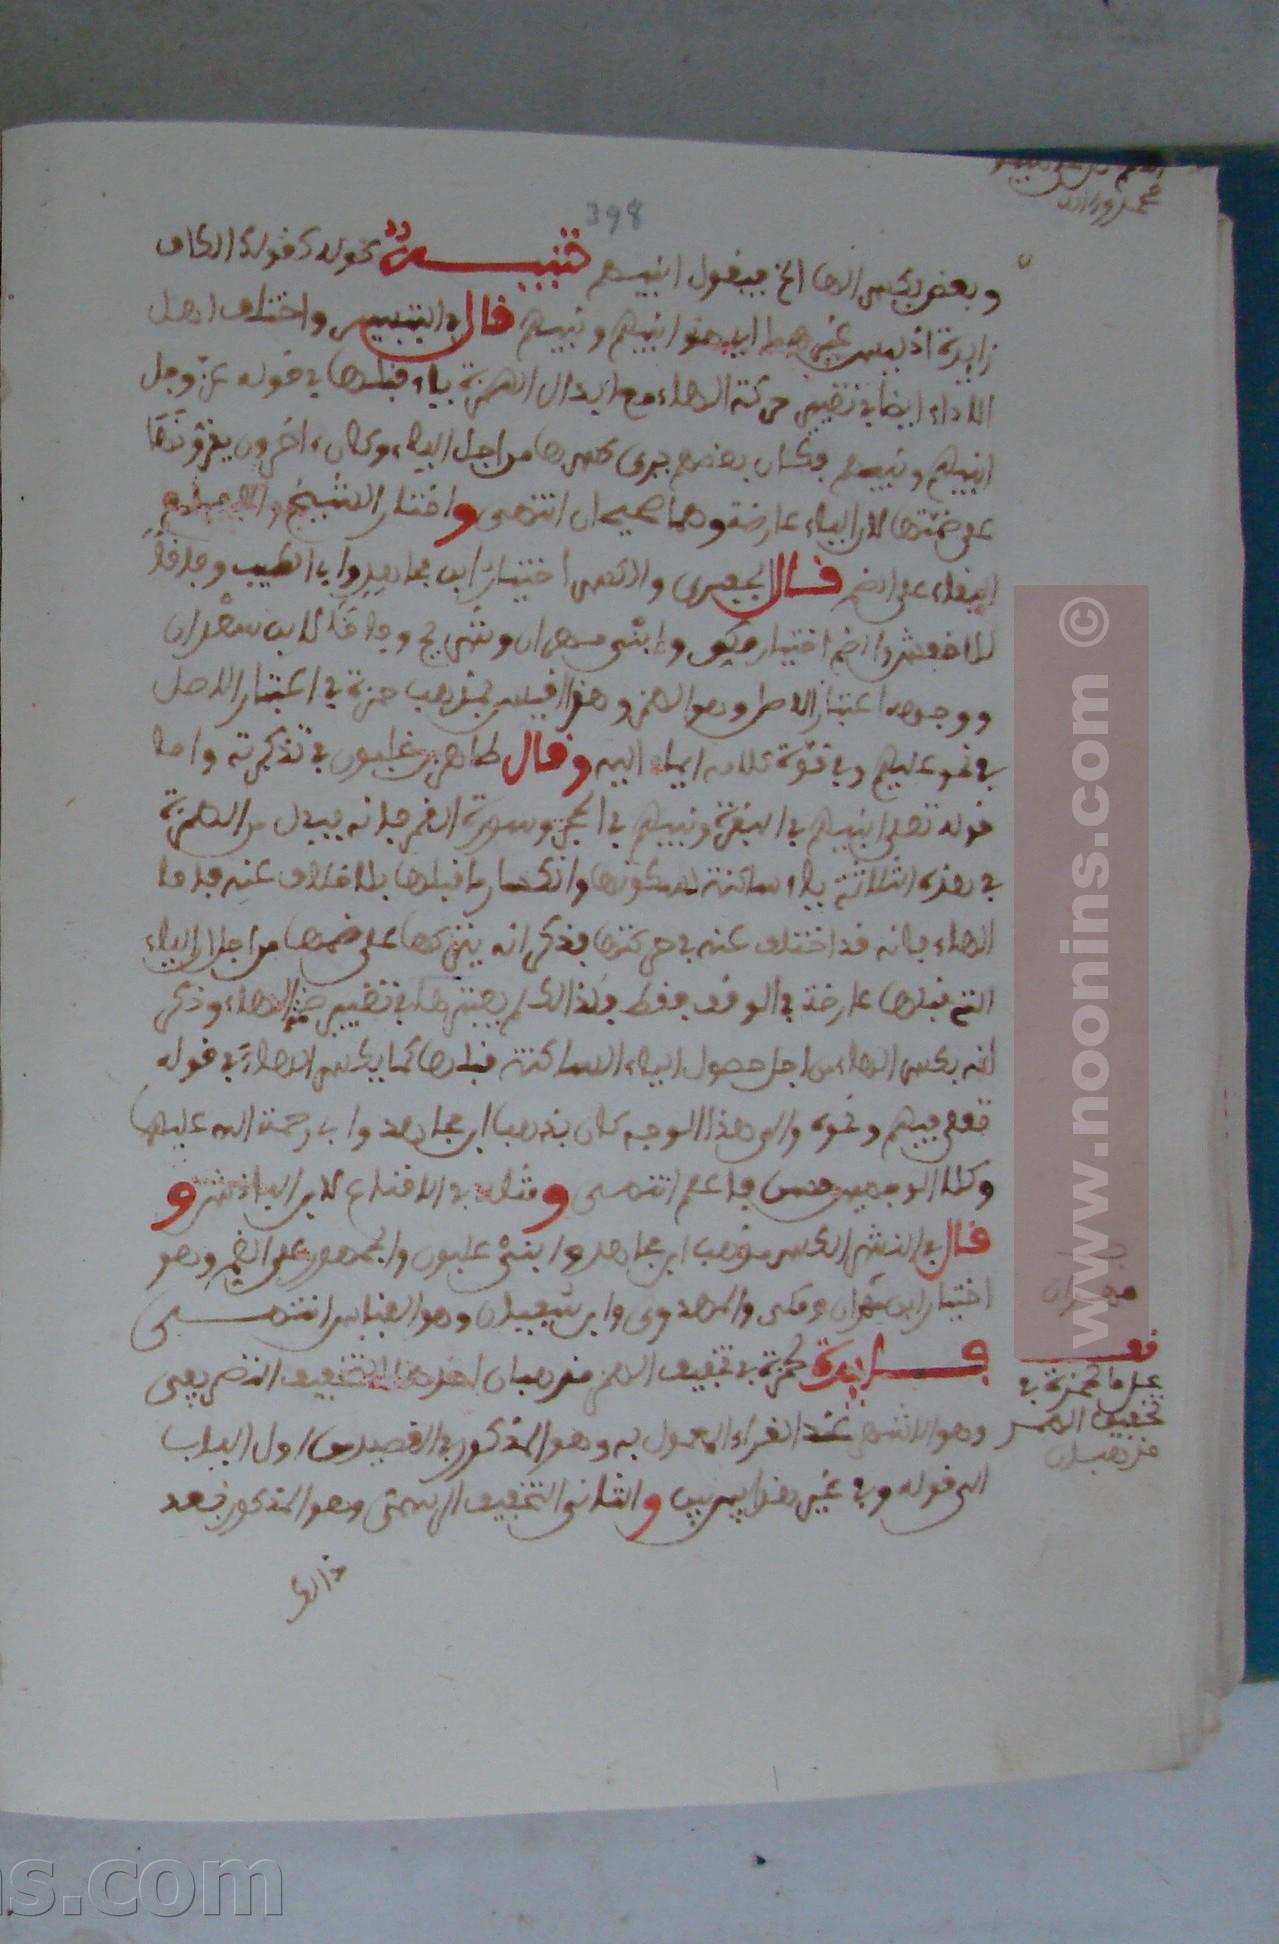 398
وبعض بكسر الها الخ فيقول انبيهم تنبيه نحوله كقولك الكاف
زايدة اذ ليس غير هما اي هو انبيهم ونبيهم قال في التيسير واختلف اهل
الاداء ايضا في تغيير حركة الهاء مع ابدال الهمزة ياء قبلها في قوله عز وجل
انبيهم ونبيهم فكان بعضهم يرى كسرها من اجل الياء وكان ءاخرون يقرونها
على ضمتها لان الياء عارضة وهما صحيحان انتهى واختار الشيخ
البقاء على الضم قال الجعبري والكسر اختيار ابن مجاهد وابا الطيب وفاقا
للاخفش والضم اختيار مكي وابني مهران وشريح وفاقا لابن مهران
ووجهه اعتبار الاصل وهو الهمز وهذا اقيس بمذهب حمزة في اعتبار الاصل
في نحو عليهم وفي قوة كلامه ايماء اليه وقال طاهر بن غلبون في تذكرته واما
قوله تعلى انبيهم في البقرة ونبيهم في الحجر وسورة القمر فانه يبدل من الهمزة
في هذه الثلاثة ياء ساكنة لسكونها وانكسار ما قبلها بلا خلاف عنه فاما
الهاء فانه قد اختلف عنه في حركتها فذكر انه يتركها على ضمها من اجل ان الياء
التي قبلها عارضة في الوقف فقط فلذالك لم يعتبرها في تغيير ضم الهاء وذكر
انه بكسر الهاء من اجل حصول الياء الساكنة قبلها كما يكسر الهاء في قوله
تعلى فيهم ونحوه والى هذا الوجه كان يذهب ابن مجاهد وابي رحمة الله عليهما
وكلا الوجهين حسن فاعلم انتهى ومثله في الاقناع لابن الباذش و
قال في النشر الكسر مذهب ابن مجاهد وابني غلبون والجمهور على الضم وهو
اختيار ابن مهران ومكي والمهدوي وابن سفيان وهو القياس انتهى
فايدة لحمزة في تخفيف الهمز مذهبان احدهما التخفيف التصريفي
وهو الاشهر عند القراء المعمول به وهو المذكور في القصيد من اول الباب
الى قوله وفي غير هذا بين بين والثاني التخفيف الرسمي وهو المذكور فبعد
ذالك
مهران
قف
على ما لحمزة في
تخفيف الهمز
مذهبان
www.noonins.com ©
ns.com